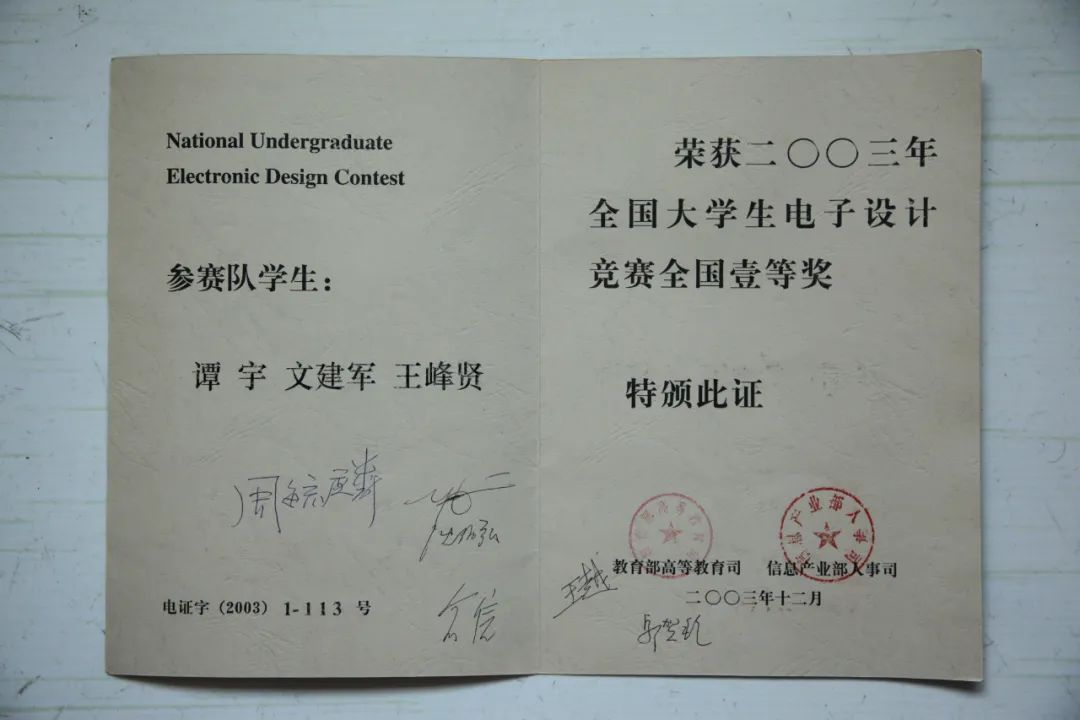 National Undergraduate
Electronic Design Contest
参赛队学生：
谭 宇 文建军 王峰贤
电证字（2003） 1-113 号
荣获二〇〇三年
全国大学生电子设计
竞赛全国壹等奖
特颁此证
教育部高等教育司 信息产业部人事司
二〇〇三年十二月
王越
信息产业部人事司